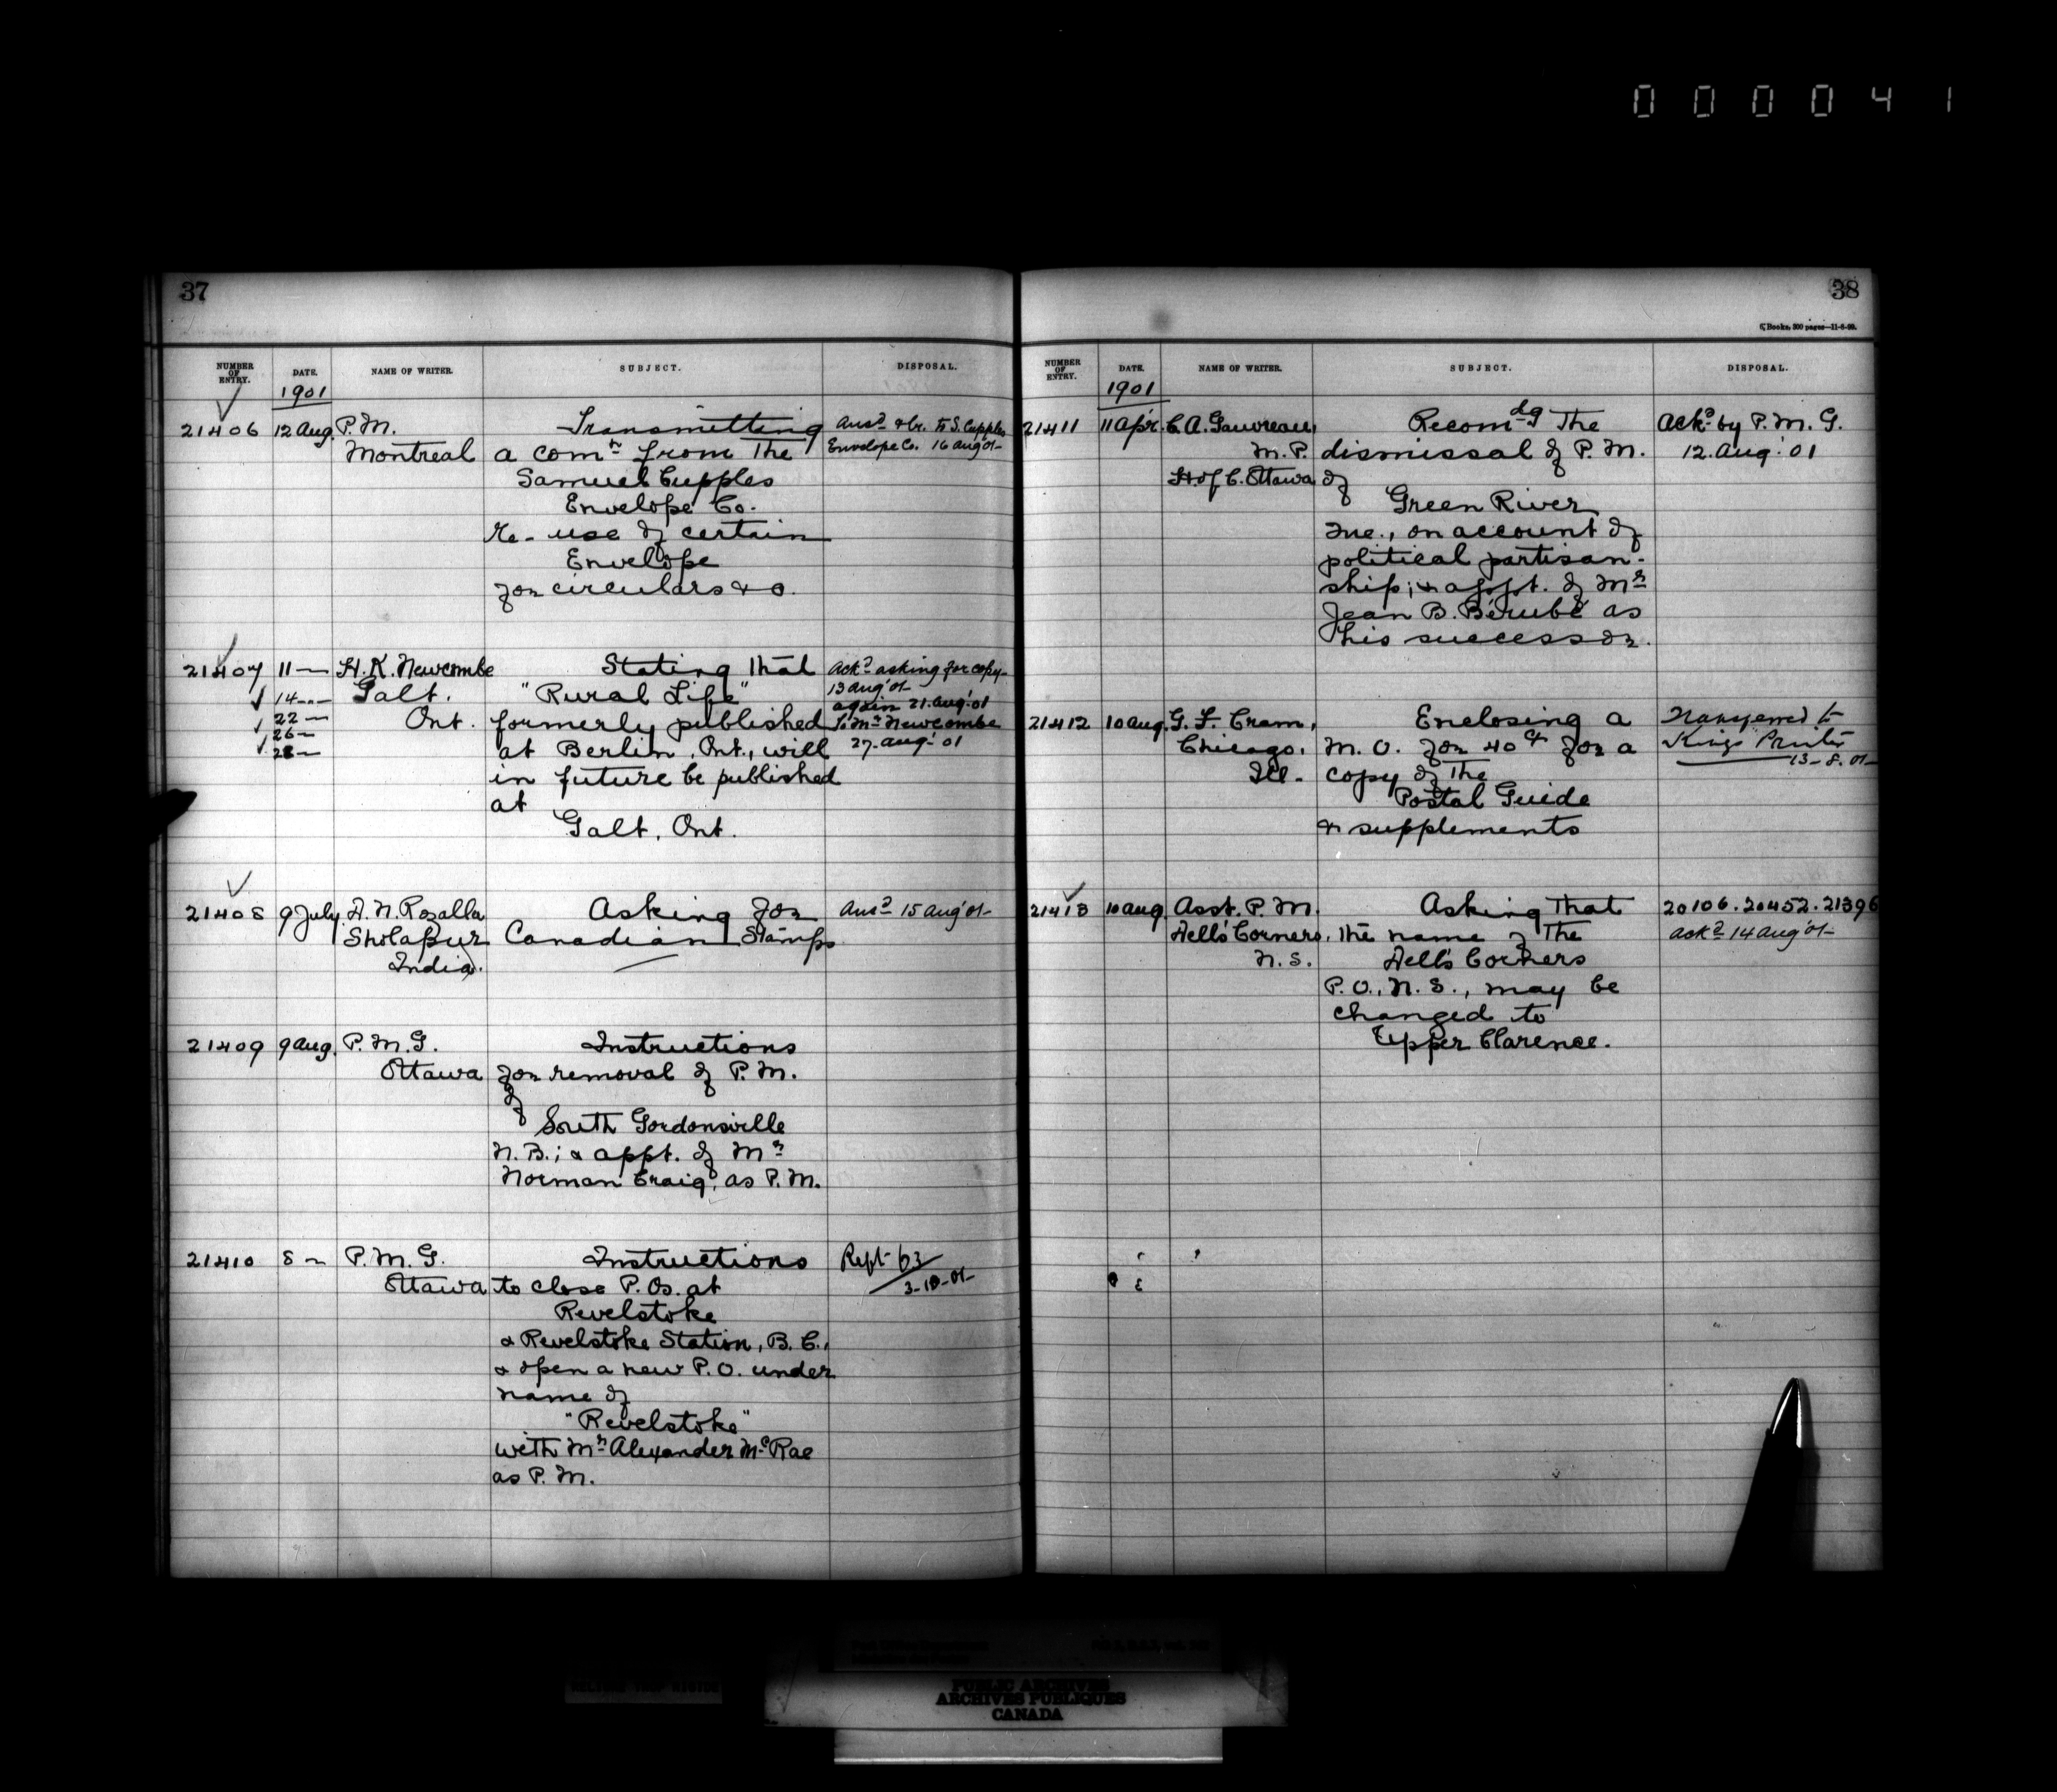 000041
37
NUMBER OF ENTRY. DATE. NAME OF WRITER. SUBJECT. DISPOSAL.
1901
21406 12 Aug. P.M. Transmitting Ansd & Cr. to S. Cupples
Montreal a comn from The Envelope Co. 16 Aug '01
Samuel Cupples
Envelope Co.
re- use of certain
Envelope
for circulars &c.
21407 11 — H. K. Newcombe Stating that Ackd asking for copy
14 — Galt. "Rural Life" 13 Aug '01
again 21. Aug. 01
22 — Ont. formerly published To Mr Newcombe
26 — at Berlin, Ont., will 27. Aug. '01
28 —
in future be published
at
Galt, Ont.
21408 9 July A. N. Rozalla Asking for Ansd 15 Aug '01
Sholapur Canadian Stamps
India.
21409 9 Aug. P.M.G. Instructions
Ottawa for removal of P.M.
of
South Gordonsville
N.B.; & appt. of Mr
Norman Craig, as P.M.
21410 8 — P.M.G. Instructions Rept 63
Ottawa to close P.Os. at 3-10-01
Revelstoke
& Revelstoke Station, B.C.,
& open a new P.O. under
name of
"Revelstoke"
with Mr Alexander McRae
as P.M.
38
Books, 300 pages—11-6-00.
NUMBER OF ENTRY. DATE. NAME OF WRITER. SUBJECT. DISPOSAL.
1901
21411 11 Apr. C. A. Gauvreau, Recomdg The Ackd by P.M.G.
M.P. dismissal of P.M. 12. Aug. '01
H. of C. Ottawa of
Green River
Que., on account of
political partisan-
ship; & appt. of Mr
Jean B. Bérubé as
his successor.
21412 10 Aug. G. F. Cram, Enclosing a Transferred to
Chicago, M.O. for 40 cts for a Kings Printer
Ill. copy of The 13-8-01
Postal Guide
& supplements
21413 10 Aug. Asst. P.M. Asking that 20106. 20452. 21396
Hell's Corners, the name of The ackd 14 Aug '01
N.S. Hell's Corners
P.O., N.S., may be
changed to
Upper Clarence.
PUBLIC ARCHIVES
ARCHIVES PUBLIQUES
CANADA